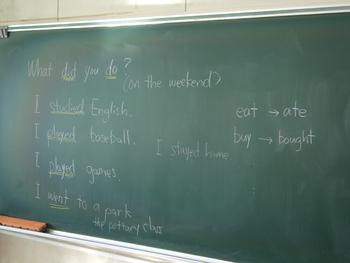 What did you do?
(on the weekend?)
I studied English.
I played baseball.
I played games.
I went to a park
the pottery class
I stayed home
eat → ate
buy → bought